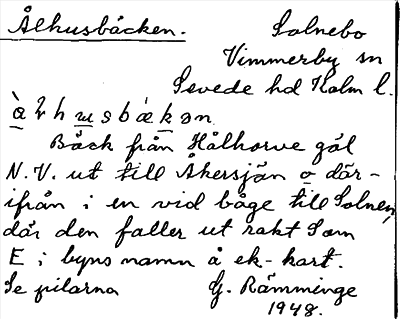 Ålhusbäcken.
Solnebo
Vimmerby sn
Sevede hd Kalm l.
àlhusbákən
Bäck från Hålhorve göl
N.V. ut till Åkersjön o där-
ifrån i en vid båge till Solnen,
där den faller ut rakt Som
E i byns namn å ek-kart.
Se pilarna
G. Rämminge
1948.